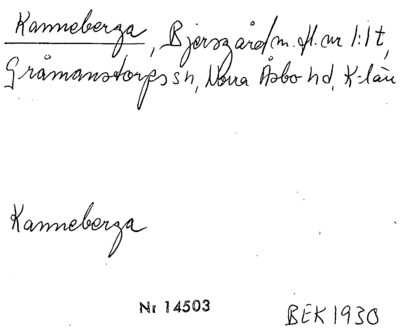 Kanneberga, Bjersgård m.fl. nr 1:1 t,
Gråmanstorps sn, Norra Åsbo hd, K-län
Kanneberga
Nr 14503
BEK 1930